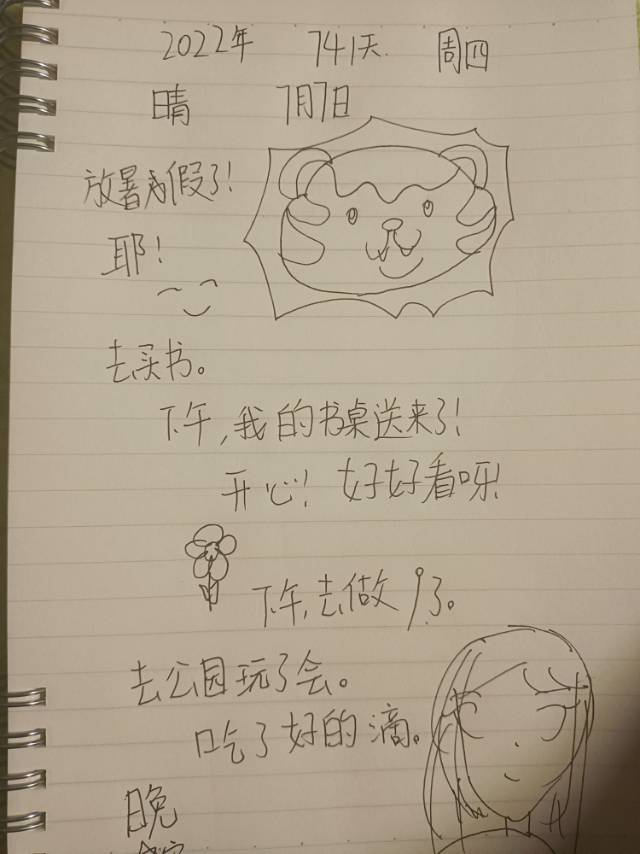 2022年 741天 周四
晴 7月7日
放暑假了!
耶!
去买书。
下午,我的书桌送来了!
开心! 好好看呀!
下午,去做了。
去公园玩了会。
吃了好的滴。
晚